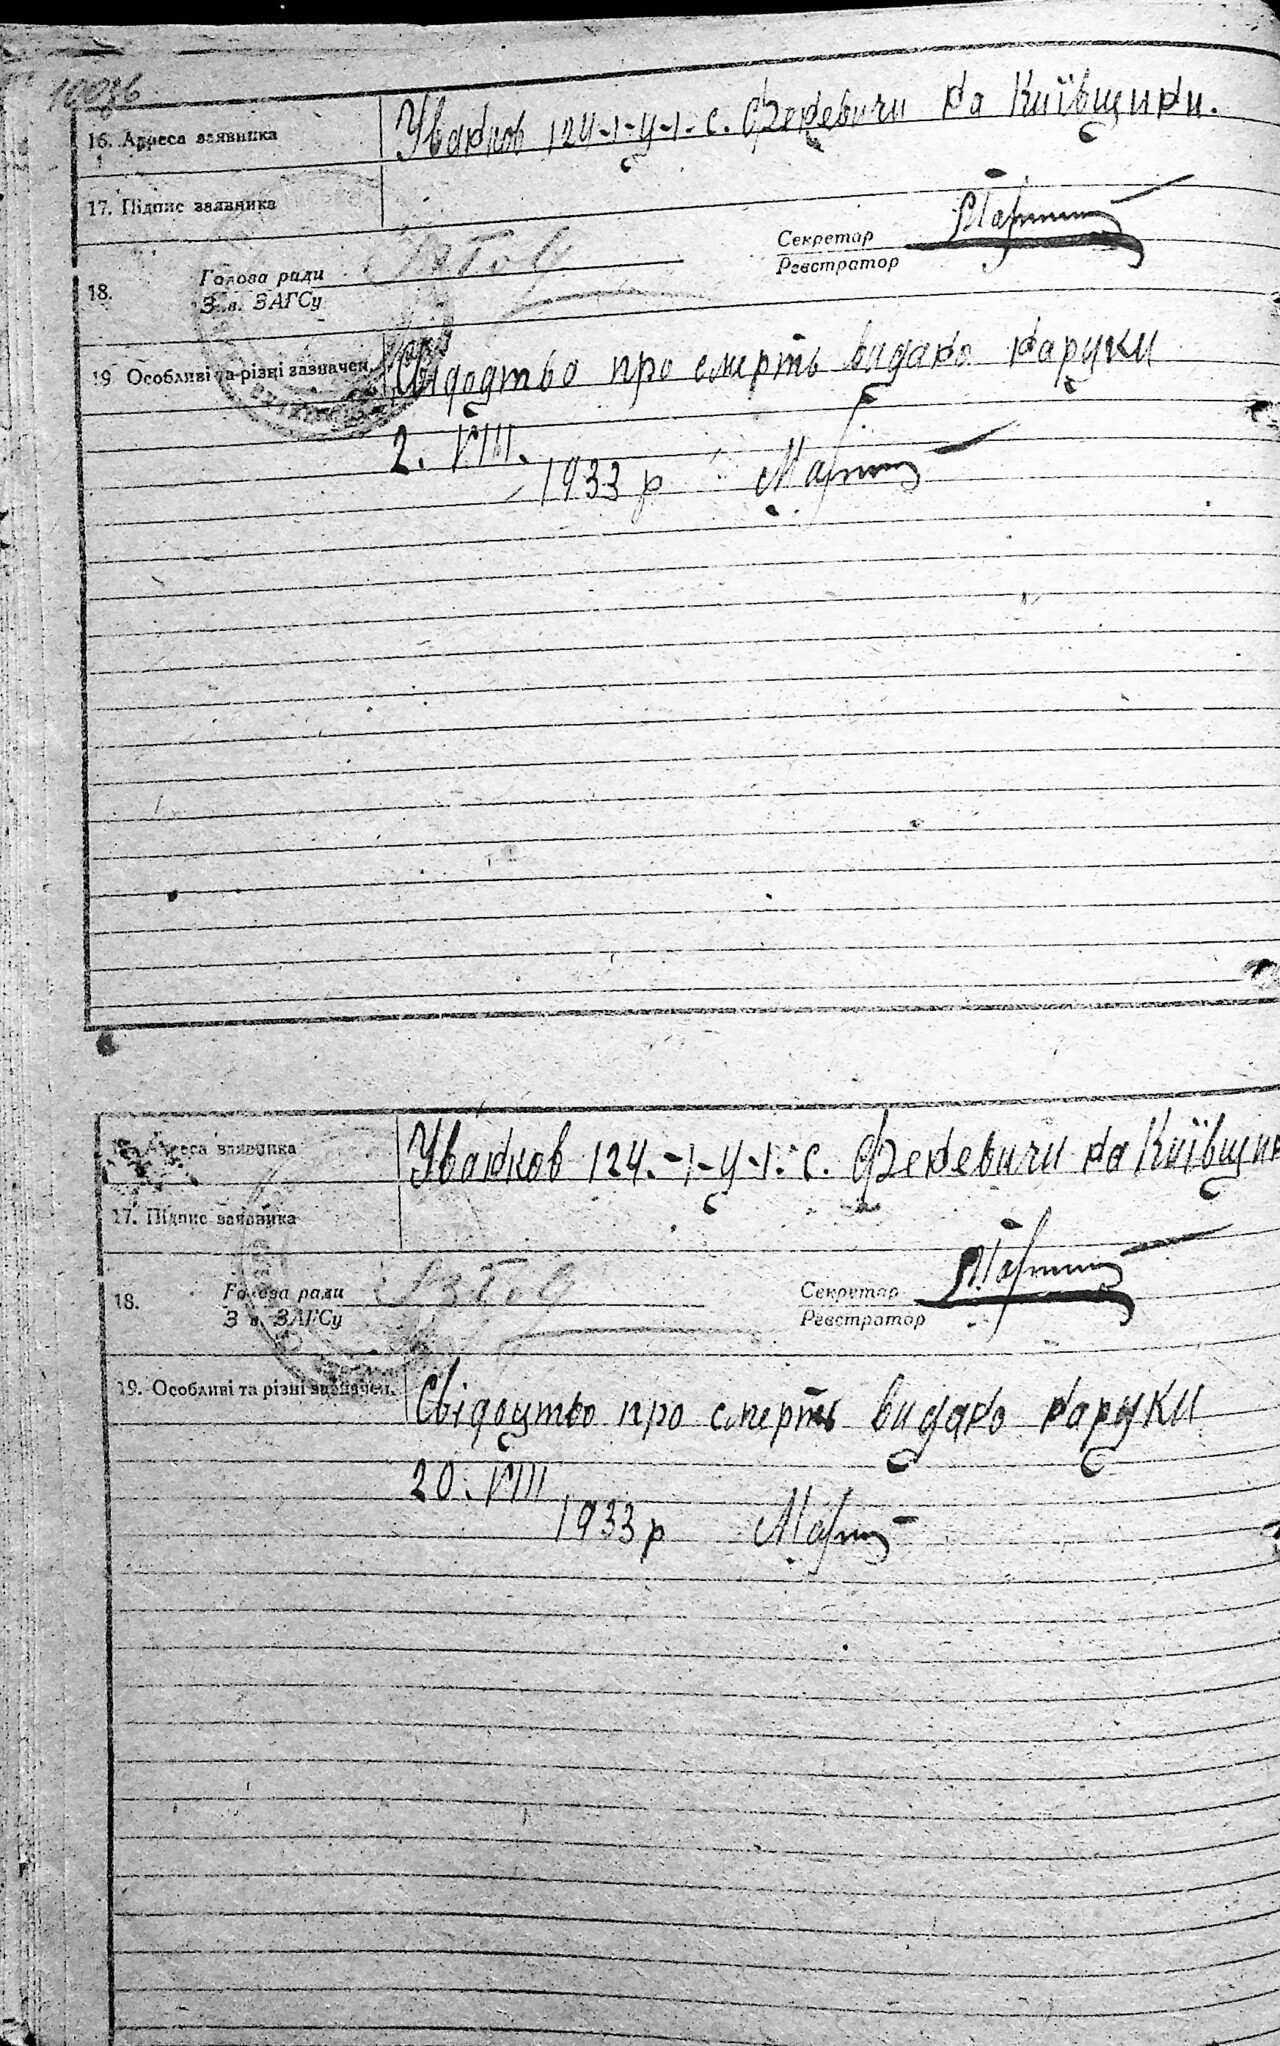 10036
16. Адреса заявника
с. Феневичи на Київщини.
17. Підпис заявника
18. Голова ради
Зав. ЗАГСу
Секретар
Реєстратор
19 Особливі та різні зазначен. Свідодтво про смерть видано наруки
2. VIII. 1933 р
16. Адреса заявника
с. Феневичи на Київщин
17. Підпис заявника
18. Голова ради
Зав. ЗАГСу
Секретар
Реєстратор
19. Особливі та різні зазначен. Свідоцтво про смерть видано наруки
20. VIII 1933 р